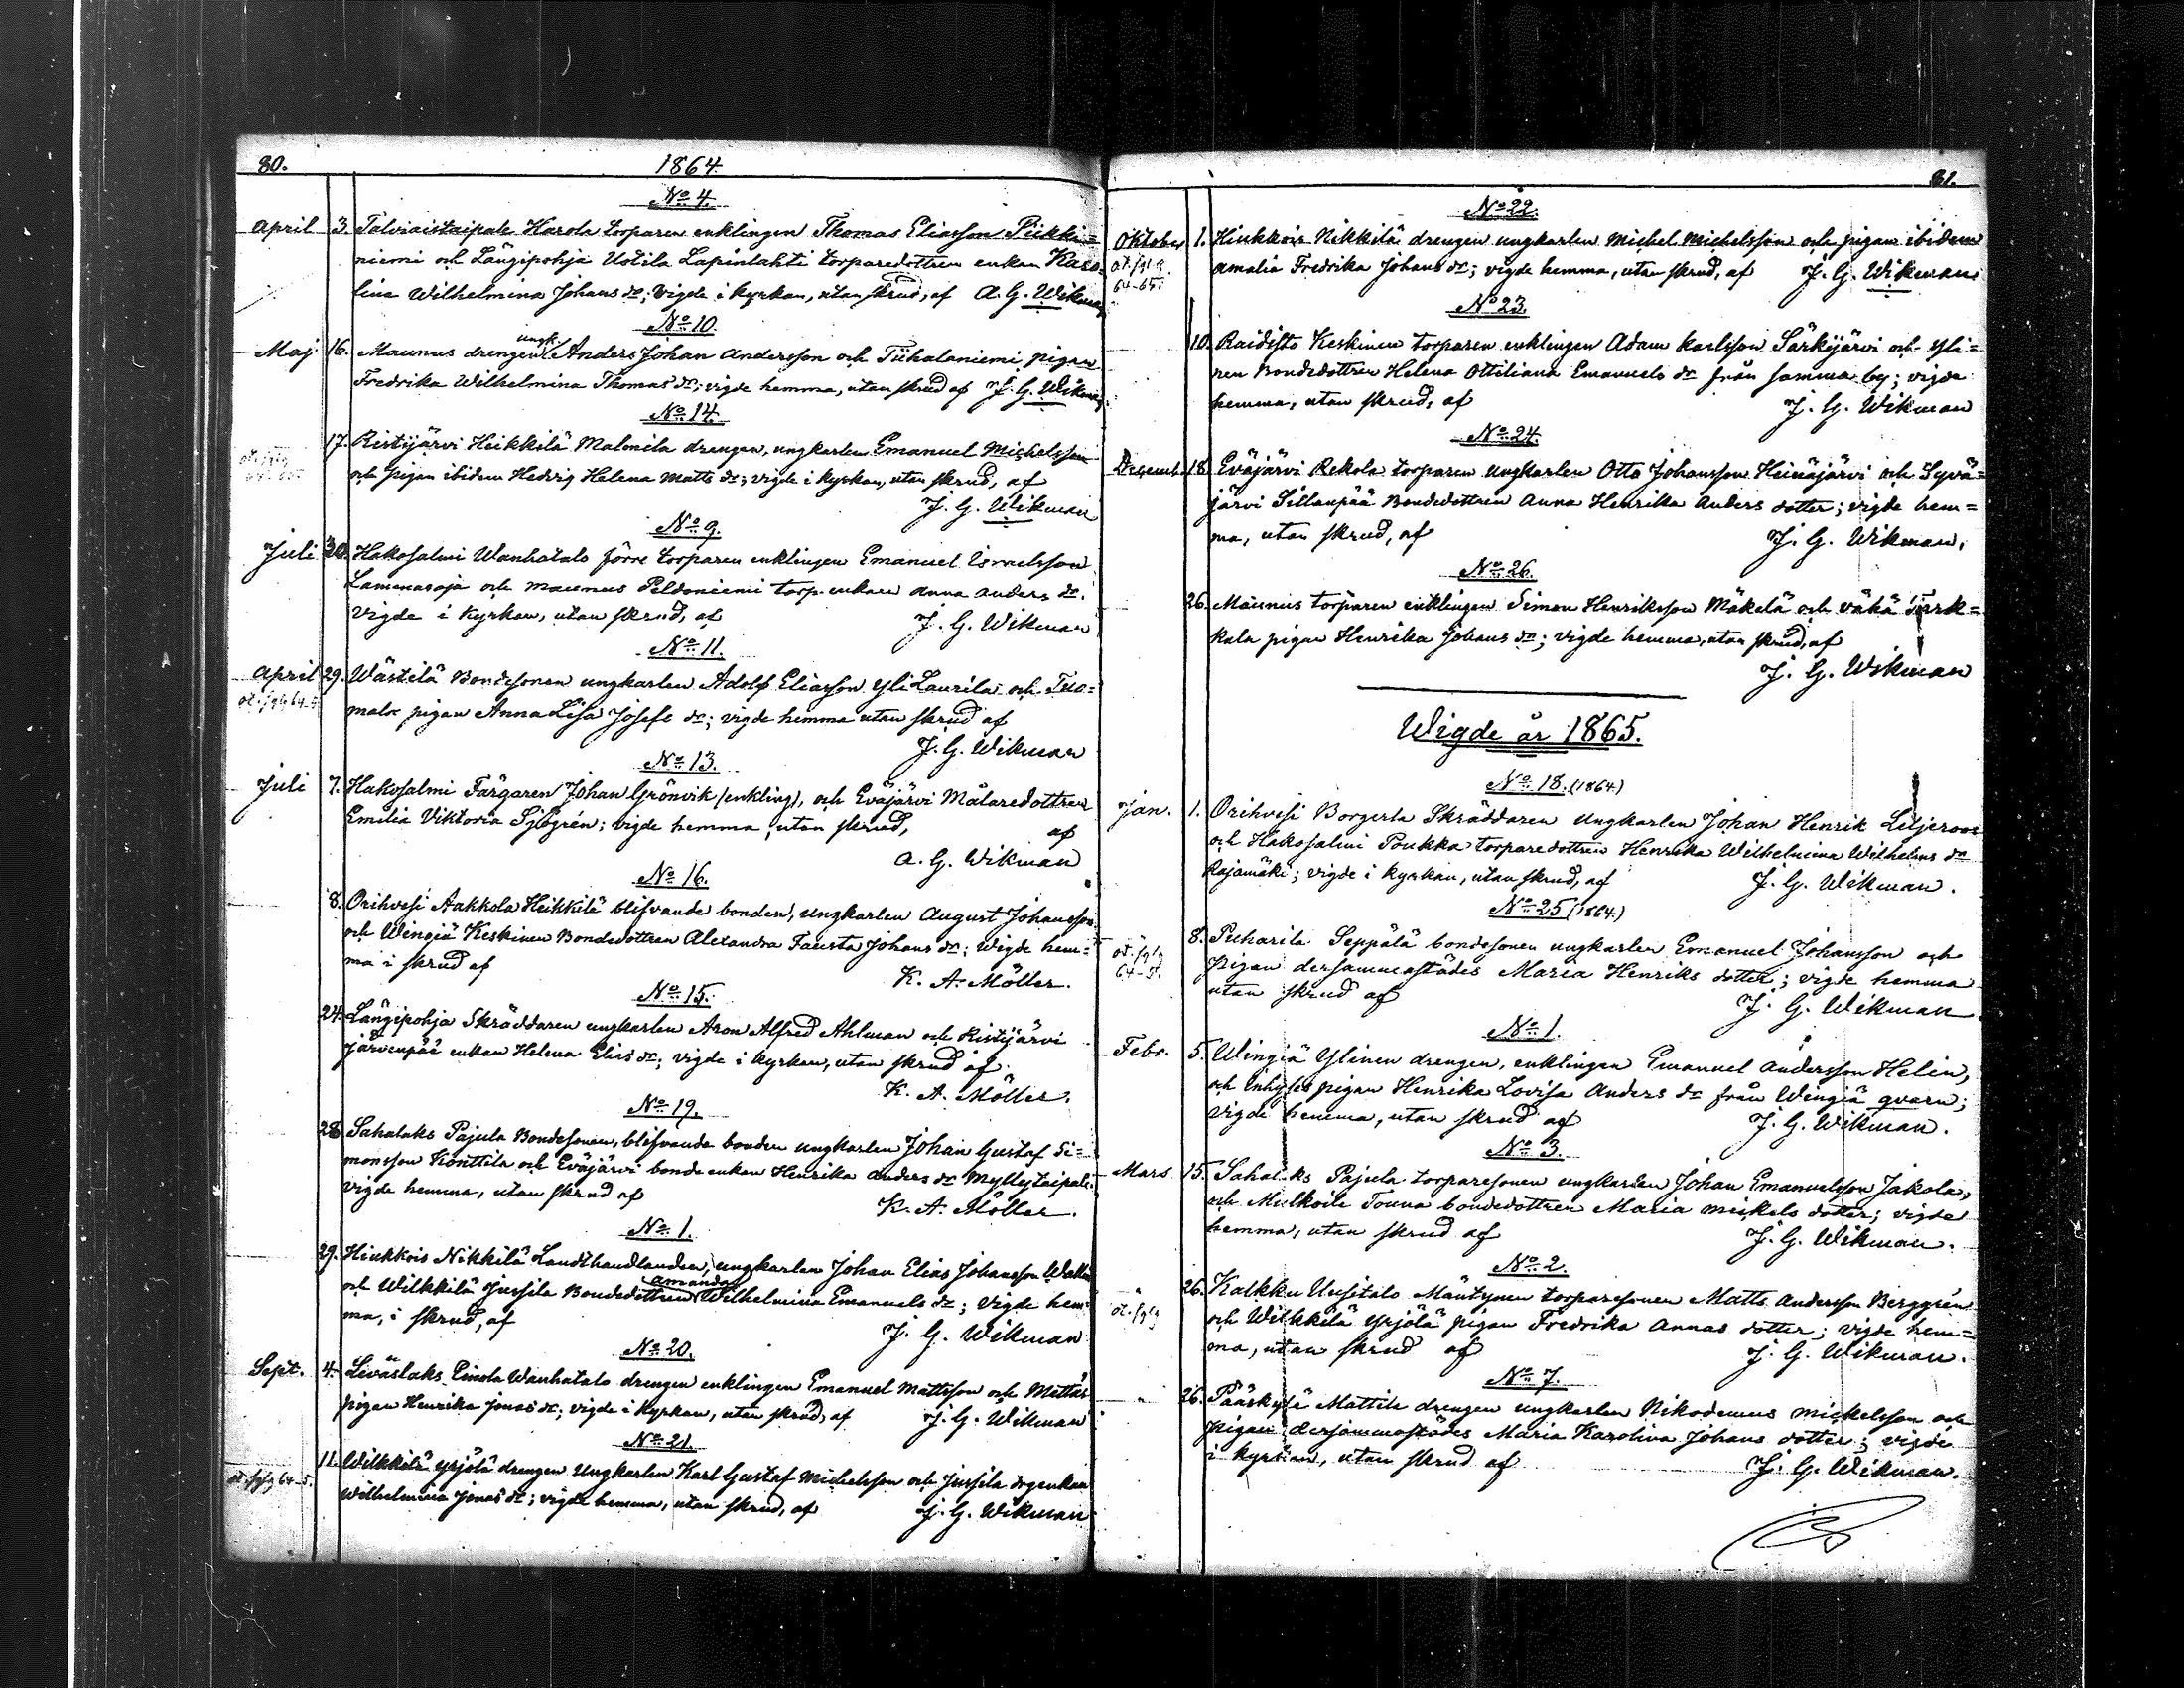 80.
1864.
No 4.
April 3. Talviaistaipale Harola torparen enklingen Thomas Eliasson Pukki=
niemi och Längipohja Uotila Lapinlahti torparedottren enkan Karo-
lina Wilhelmina Johans dr; vigde i kyrkan, utan skrud, af A. G. Wikman
No 10.
Maj 16. Maunus drengen ungk. Anders Johan Andersson och Tiihalaniemi pigan
Fredrika Wilhelmina Thomas dr; vigde hemma, utan skrud af J. G. Wikman
No 14.
17. Ristijärvi Heikkilä Malmila drengen, ungkarlen Emanuel Michelsson
och pigan ibidem Hedvig Helena Matts dr; vigde i kyrkan, utan skrud, af
J. G. Wikman
No 9.
Juli Hakosalmi Wanhatalo förre torparen enklingen Emanuel Israelsson
Lammasoja och Maunus Peldoniemi torp. enkan Anna Anders dr.
vigde i kyrkan, utan skrud, af J. G. Wikman
No 11.
April 29. Wästilä Bondesonen ungkarlen Adolf Eliasson Yli Laurila och Tuo=
mala pigan Anna Lisa Josefs dr; vigde hemma utan skrud af
öt. fglg 64-5
J. G. Wikman
No 13.
Juli 7. Hakosalmi Färgaren Johan Grönvik (enkling), och Eväjärvi Målaredottren
Emilia Viktoria Sjögrén; vigde hemma, utan skrud, af
A. G. Wikman
No 16.
8. Orihvesi Aakkola Heikkilä blifvande bonden, ungkarlen August Johansson
och Wingiä Keskinen Bondedottren Alexandra Fausta Johans dr; vigde hem=
ma i skrud af K. A. Möller.
No 15.
24. Längipohja Skräddaren ungkarlen Aron Alfred Ahlman och Ristijärvi
Järvenpää enkan Helena Elias dr; vigde i kyrkan, utan skrud af
K. A. Möller.
No 19.
28 Sahalaks Pajula Bondesonen, blifvande bonden ungkarlen Johan Gustaf Si=
monsson Konttila och Eväjärvi bonde enkan Henrika Anders dr Myllytaipale
vigde hemma, utan skrud af K. A. Möller.
No 1.
29. Hiukkois Nikkilä Landthandlanden, ungkarlen Johan Elias Johansson Wallin
och Wilkkilä Jussila Bondedottren Amanda Wilhelmina Emanuels dr; vigde hem=
ma, i skrud, af J. G. Wikman
No 20.
Sept. 4. Leväslaks Einola Wanhatalo drengen enklingen Emanuel Mattsson och
pigan Henrika Jonas dr; vigde i kyrkan, utan skrud, af J. G. Wikman
No 21.
11. Wilkkilä Yrjölä drengen Ungkarlen Karl Gustaf Michelsson och Jussila
öt. fglg 64-5.
Wilhelmina Jonas dr; vigde hemma, utan skrud, af J. G. Wikman
81.
No 22.
Oktober 1. Hiukkois Nikkilä drengen ungkarlen Michel Michelsson och pigan ibidem
öt. fglg.
64-65.
Amalia Fredrika Johans dr; vigde hemma, utan skrud, af J. G. Wikman
No 23.
10. Raidisto Keskinen torparen enklingen Adam Karlsson Särkijärvi och Yli=
nen Bondedottren Helena Ottiliana Emanuels dr från samma by; vigde
hemma, utan skrud, af J. G. Wikman
No 24.
Decemb. 18. Eväjärvi Rekola torparen ungkarlen Otto Johansson Heinäjärvi och Syvä=
järvi Sillanpää Bondedottren Anna Henrika Anders dotter; vigde hem=
ma, utan skrud, af J. G. Wikman,
No 26.
26. Maunus torparen enklingen Simon Henriksson Mäkelä och Väkä
kala pigan Henrika Johans dr; vigde hemma, utan skrud, af
J. G. Wikman
Wigde år 1865.
No 18. (1864)
Jan. 1. Orihvesi Borgerla Skräddaren Ungkarlen Johan Henrik Liljeroos
och Hakosalmi Poukka torparedottren Henrika Wilhelmina Wilhelms dr
Rajamäki; vigde i kyrkan, utan skrud, af J. G. Wikman.
No 25 (1864)
8. Puharila Seppälä bondesonen ungkarlen Emanuel Johansson och
öt. fglg
64-5.
pigan dersammastädes Maria Henriks dotter; vigde hemma
utan skrud af J. G. Wikman
No 1.
Febr. 5. Wingiä Ylinen drengen, enklingen Emanuel Andersson Helin,
och inhyses pigan Henrika Lovisa Anders dr från Wingiä qvarn;
vigde hemma, utan skrud af J. G. Wikman.
No 3.
Mars 15. Sahalaks Pajula torparesonen ungkarlen Johan Emanuelsson Jakola,
och Mulkoila Touna bondedottren Maria Mickels dotter; vigde
hemma, utan skrud af J. G. Wikman.
No 2.
26. Kalkku Uusitalo Mäntynen torparesonen Matts Andersson Berggrén
öt. fglg
och Wilkkilä Yrjölä pigan Fredrika Annas dotter; vigde hem=
ma, utan skrud af J. G. Wikman.
No 7.
26. Pääskylä Mattila drengen ungkarlen Nikodemus Mickelsson och
pigan dersammastädes Maria Karolina Johans dotter; vigde
i kyrkan, utan skrud af J. G. Wikman.